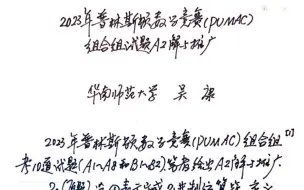 2023年普林斯顿数学竞赛(PUMAC)
组合组试题A2解与推广
华南师范大学 吴康
2023年普林斯顿数学竞赛(PUMAC)组合组[1]
考10道试题(A1~A8和B1~B2).笔者给出A2解与推广.